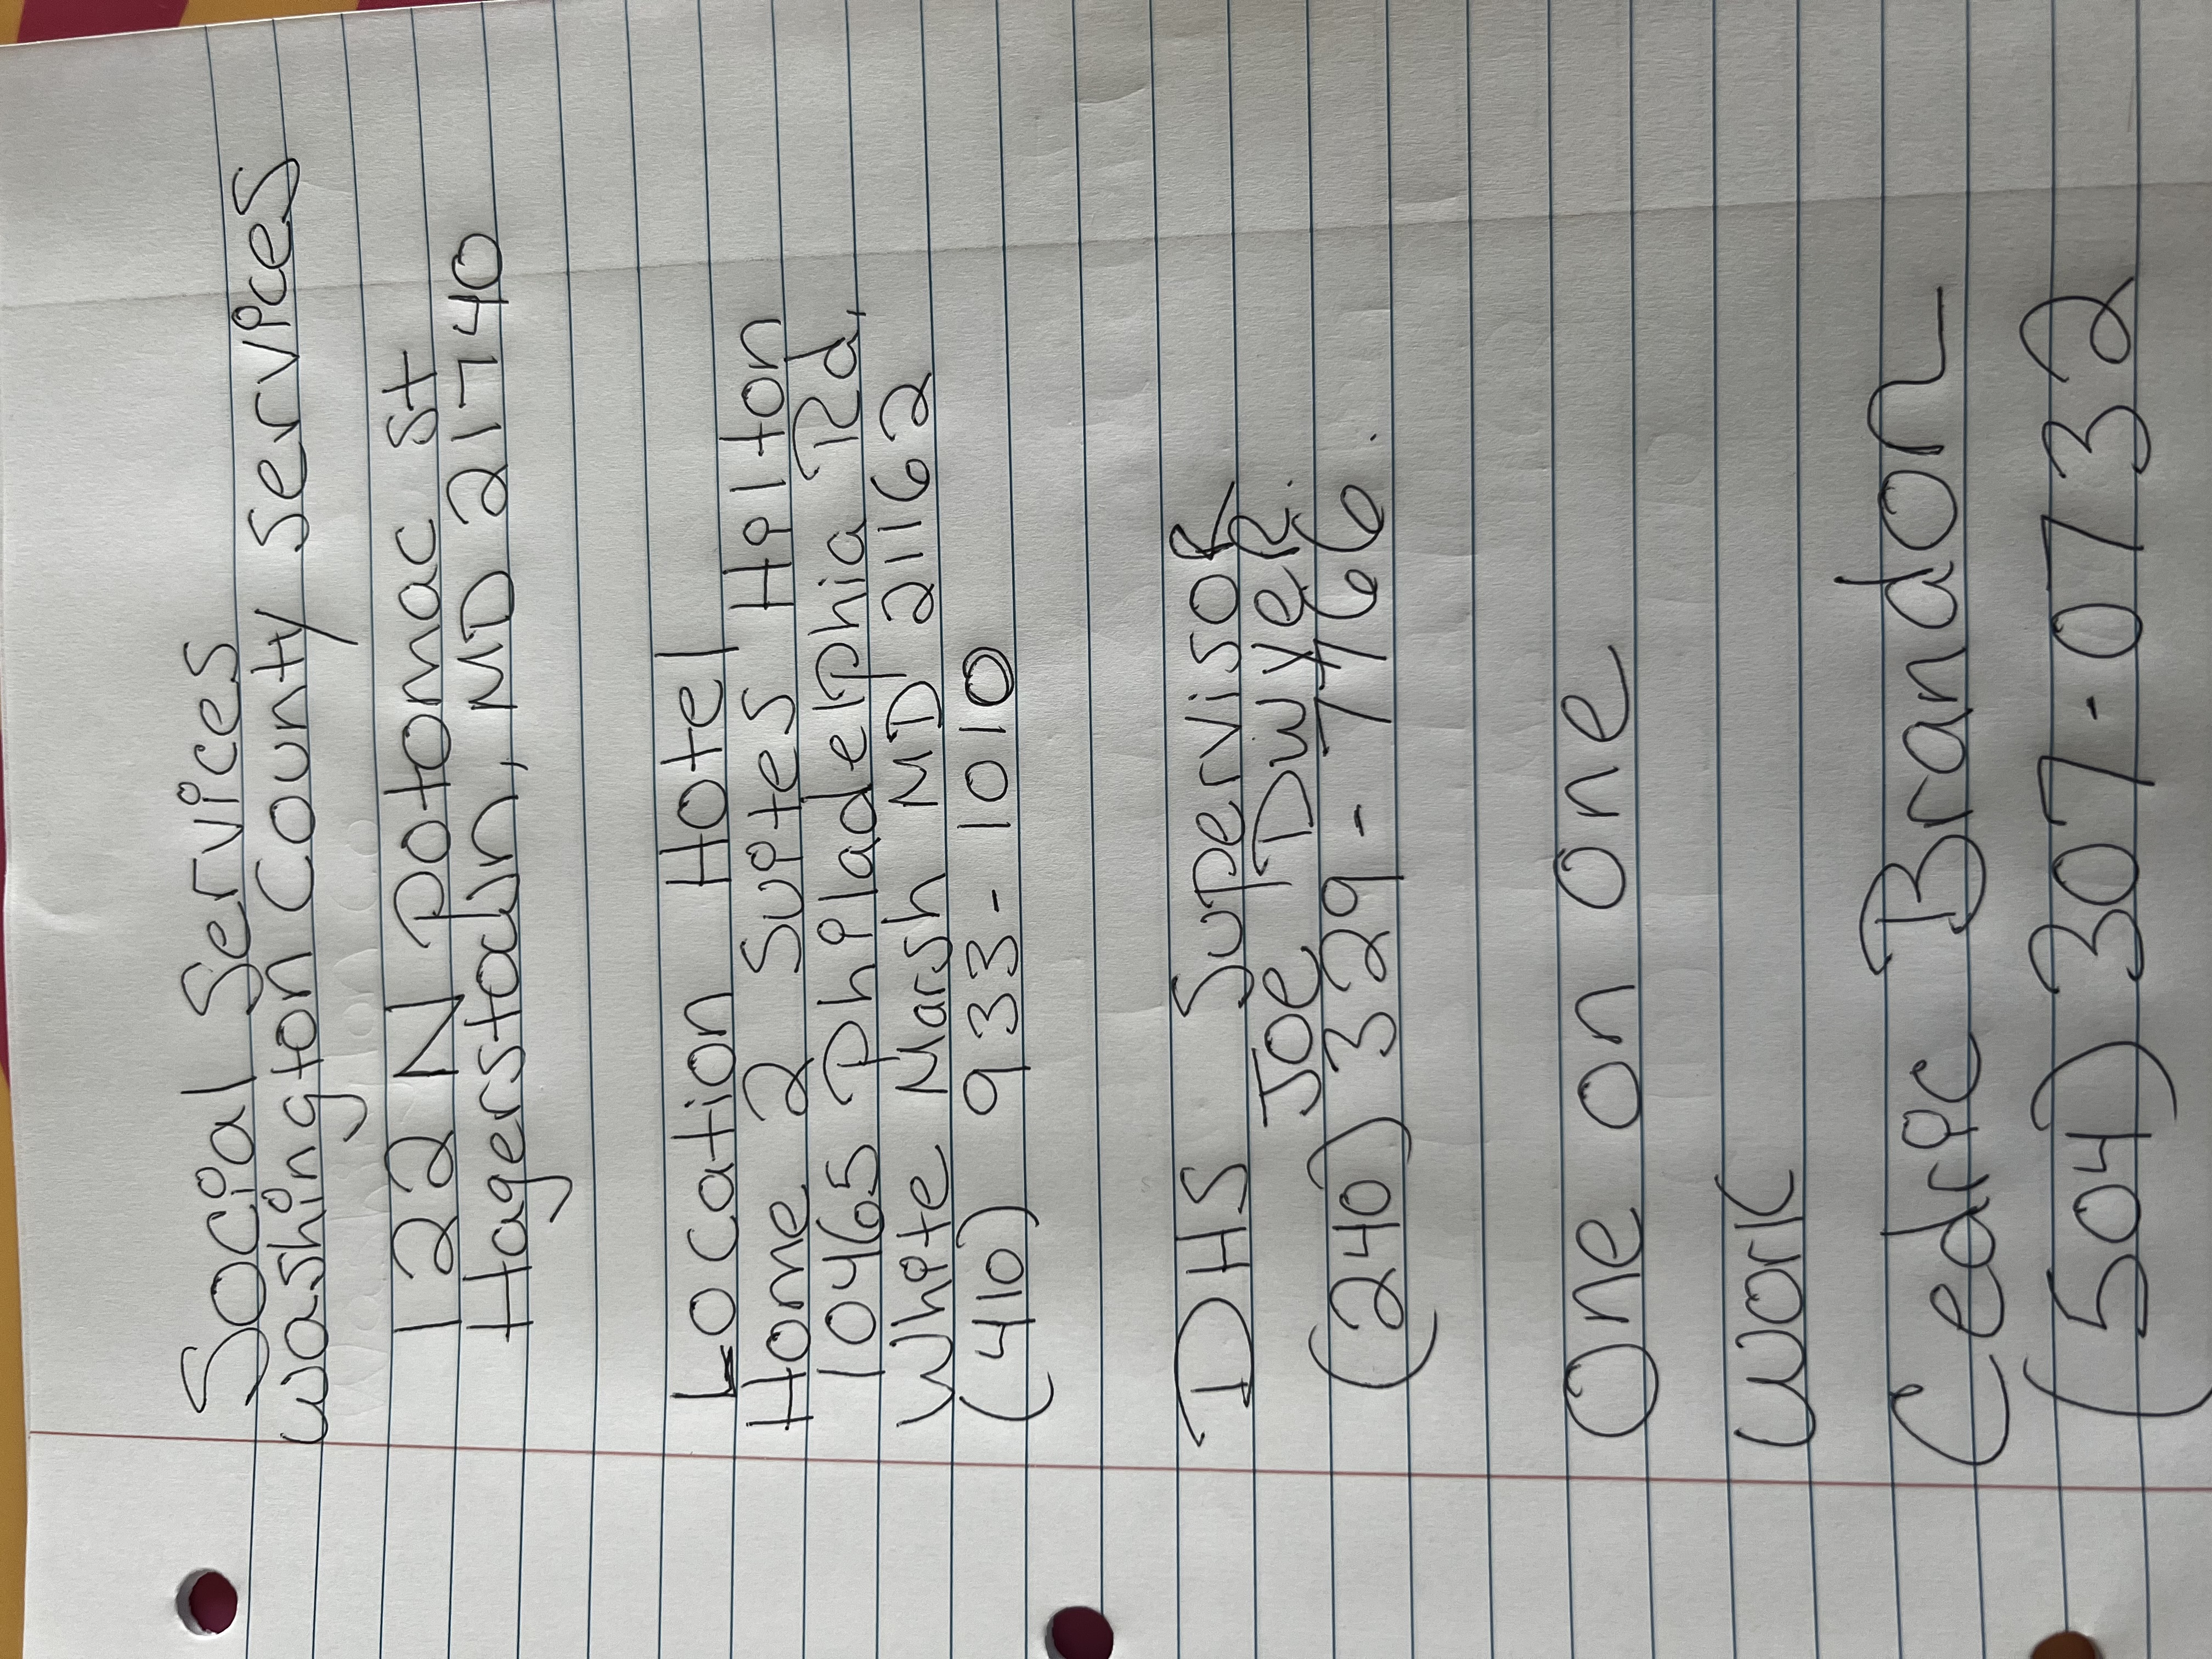 Social Services
Washington County Services
122 N Potomac St
Hagerstown, MD 21740
Location Hotel
Home 2 Suites Hilton
10465 Philadelphia Rd.
White Marsh MD 21162
(410) 933-1010
DHS Supervisor
Joe Dwyer.
(240) 329-7466.
One on one
work
Cedric Brandon
(504) 307-0732